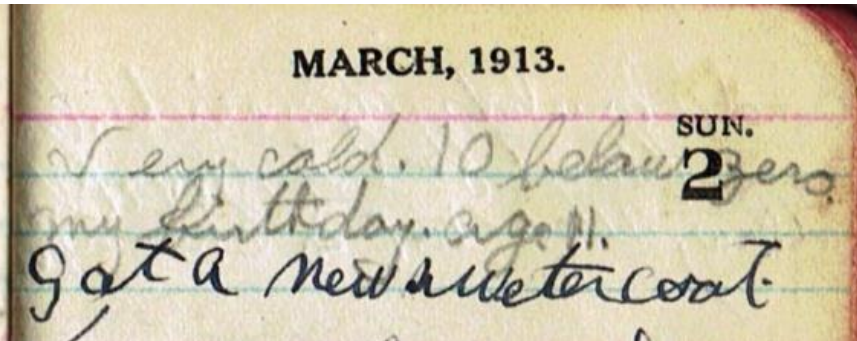 MARCH, 1913.
SUN.
2
Very cold. 10 below zero.
my birthday. age 11.
got a new sweter coat.